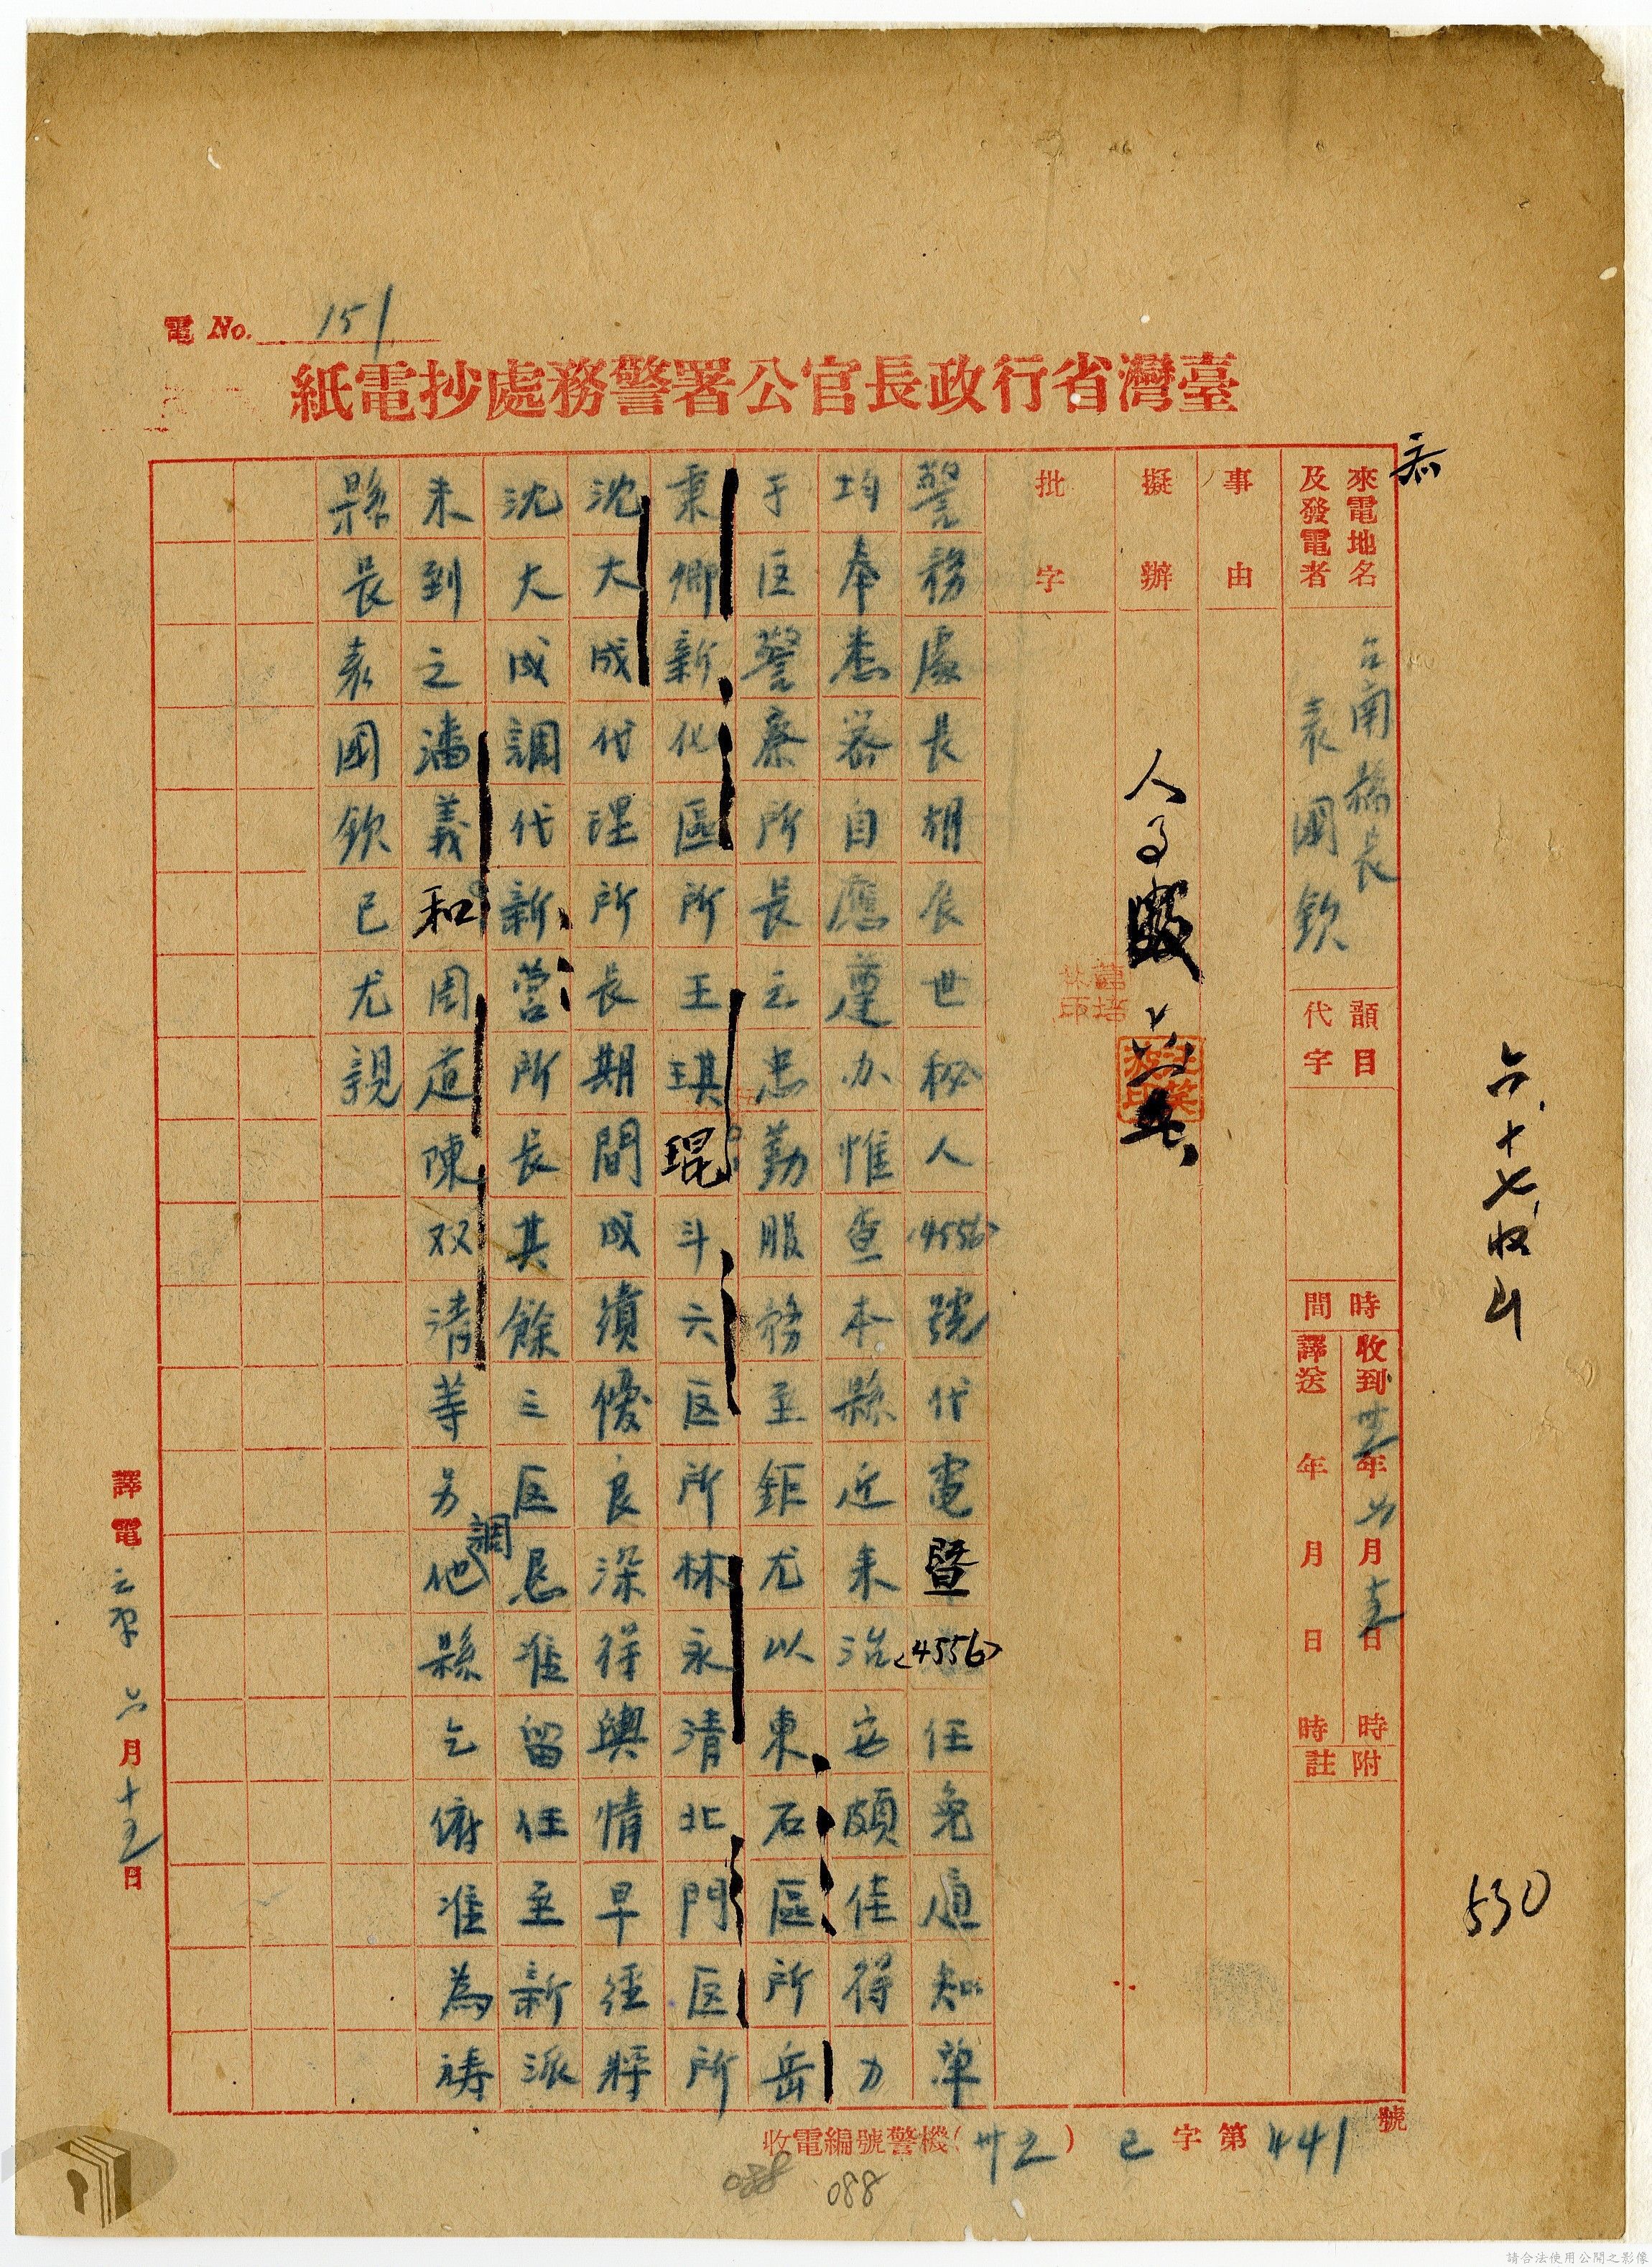 電 No. 151
臺灣省行政長官公署警務處抄電紙
來電地名及發電者
台南縣長
袁國欽
韻目代字
時間
收到 卅五年 六月 十五日 時
譯送 年 月 日 時
附註
事由
擬辦
人事股
批字
警務處長胡辰世秘人(4556)號代電暨(4556)任免通知單
均奉悉茲自應遵办惟查本縣近来治安頗佳得力
于区警察所長之忠勤服務至鉅尤以東石區所岳
秉卿新化區所王琪琨斗六区所林永清北門区所
沈大成代理所長期間成績優良深得輿情早經將
沈大成調代新營所長其餘三区恳准留任至新派
未到之潘義和周道陳双清等另調他縣乞俯准為禱
縣長袁國欽已尤親
六.十七.收
530
譯電 六月十五日
收電編號警機(卅五)已字第441號
088
088
請合法使用公開之影像